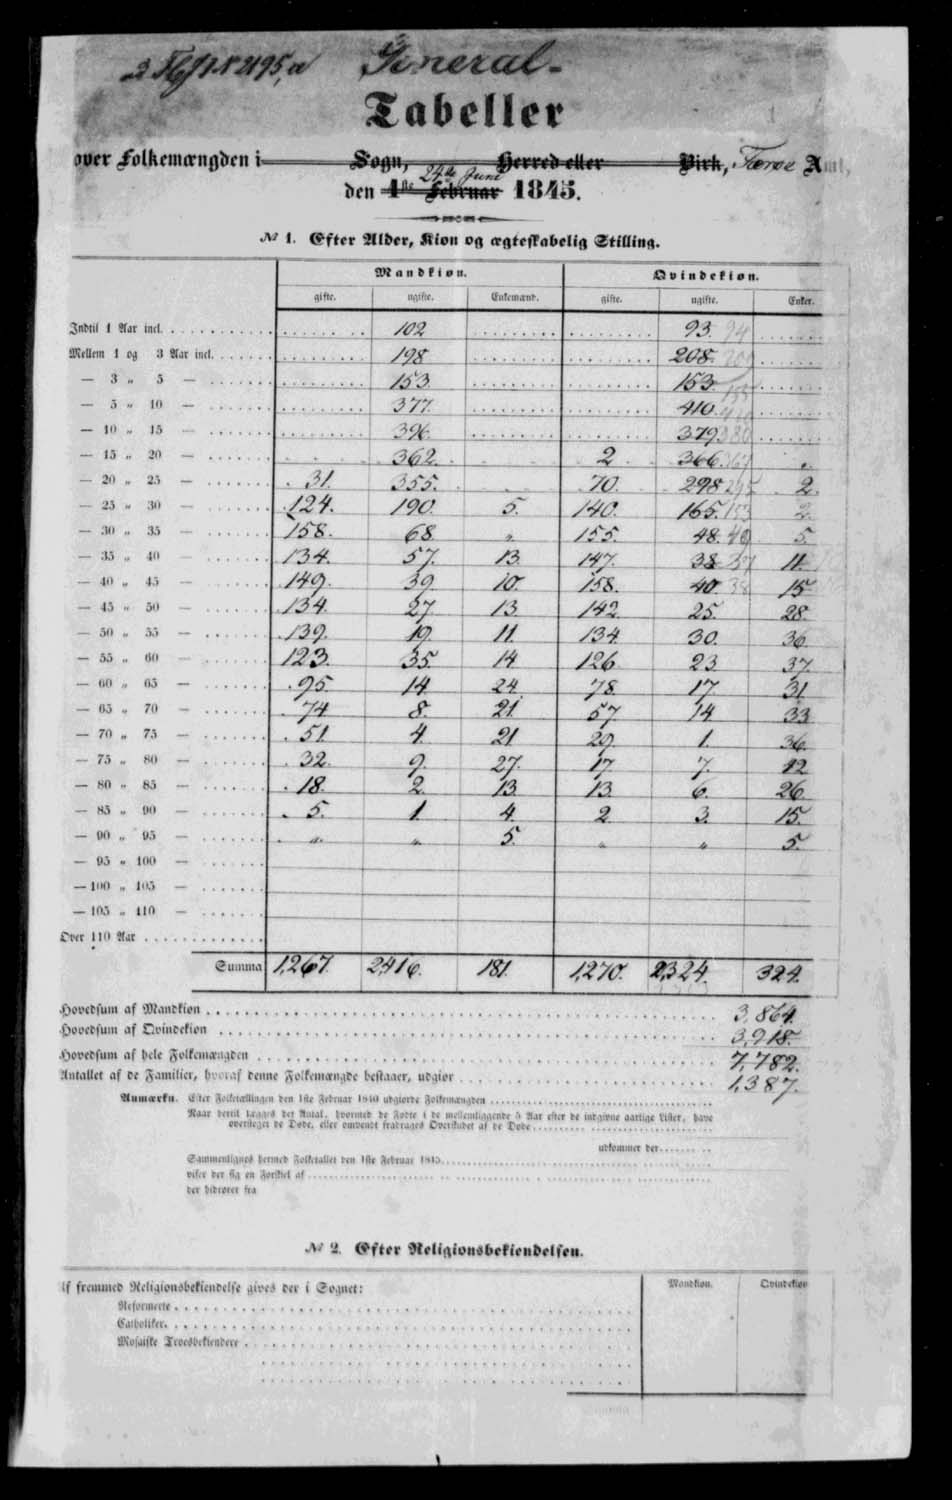 General-
Tabeller
over Folkemængden i Sogn, Herred eller Birk, Færøe Amt,
24de Juni
den 1ste Februar 1845.
№ 1. Efter Alder, Kion og ægteskabelig Stilling.
Mandkion. Qvindekion.
gifte. ugifte. Enkemænd. gifte. ugifte. Enker.
Indtil 1 Aar incl. 102 93 94
Mellem 1 og 3 Aar incl. 198 208
— 3 „ 5 — 153 153
— 5 „ 10 — 377 410
— 10 „ 15 — 396 379 380
— 15 „ 20 — 362 2 366 „
— 20 „ 25 — 31 355 70 298 2
— 25 „ 30 — 124 190 5 140 165 153 2
— 30 „ 35 — 158 68 „ 155 48 49 5
— 35 „ 40 — 134 57 13 147 38 37 11
— 40 „ 45 — 149 39 10 158 40 38 15
— 45 „ 50 — 134 27 13 142 25 28
— 50 „ 55 — 139 19 11 134 30 36
— 55 „ 60 — 123 35 14 126 23 37
— 60 „ 65 — 95 14 24 78 17 31
— 65 „ 70 — 74 8 21 57 14 33
— 70 „ 75 — 51 4 21 29 1 36
— 75 „ 80 — 32 9 27 17 7 42
— 80 „ 85 — 18 2 13 13 6 26
— 85 „ 90 — 5 1 4 2 3 15
— 90 „ 95 — „ „ 5 „ „ 5
— 95 „ 100 —
— 100 „ 105 —
— 105 „ 110 —
Over 110 Aar
Summa 1,267. 2,416. 181. 1,270. 2,324. 324.
Hovedsum af Mandkion 3,864.
Hovedsum af Qvindekion 3,918.
Hovedsum af hele Folkemængden 7,782.
Antallet af de Familier, hvoraf denne Folkemængde bestaaer, udgiør 1,387.
Anmærkn. Efter Folketællingen den 1ste Februar 1840 udgiorde Folkemængden
Naar dertil lægges det Antal, hvormed de Fødte i de mellemliggende 5 Aar efter de indgivne aarlige Lister, have
oversteget de Døde, eller omvendt fradrages Overskudet af de Døde
udkommer der
Sammenlignes hermed Folketallet den 1ste Februar 1845
viser der sig en Forskiel af
der hidrører fra
№ 2. Efter Religionsbekiendelsen.
Mandkion. Qvindekion
Af fremmed Religionsbekiendelse gives der i Sognet:
Reformerte
Catholiker
Mosaiske Troesbekiendere